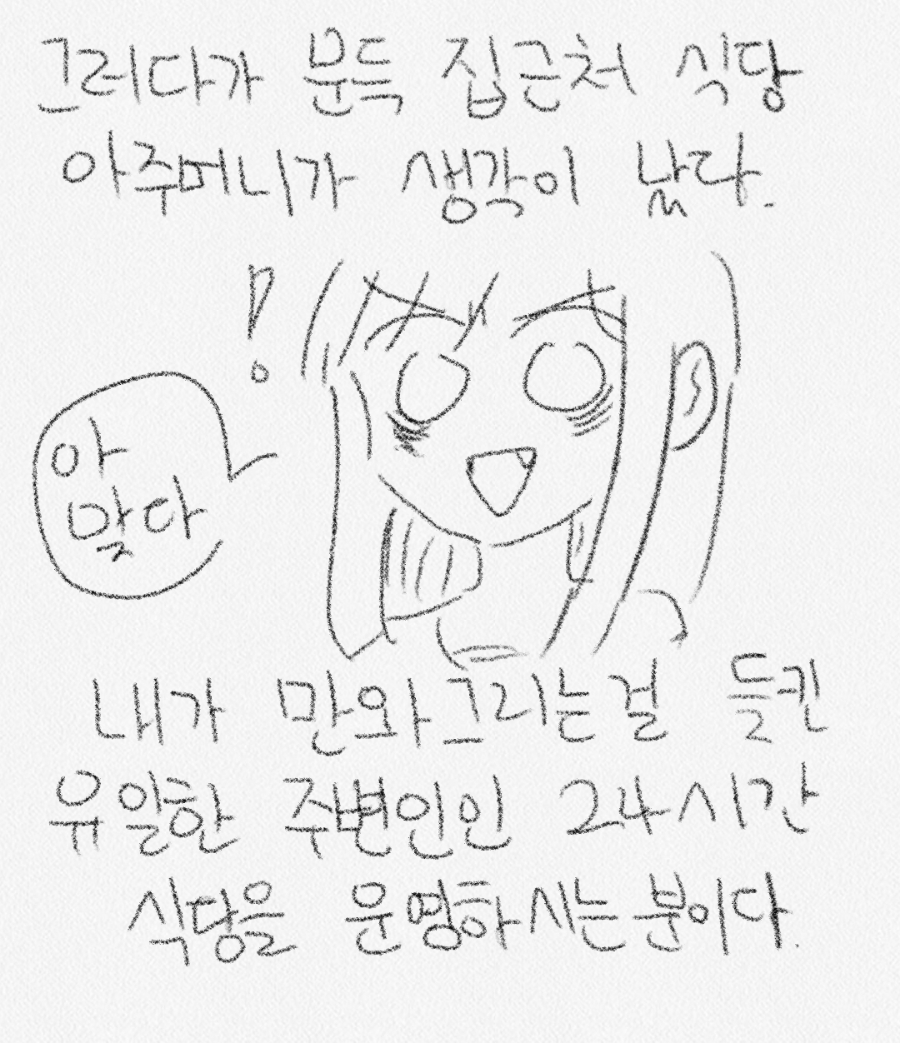 그러다가 문득 집근처 식당
아주머니가 생각이 났다.
!
아
맞다
내가 만와그리는걸 들킨
유일한 주변인인 24시간
식당을 운영하시는분이다.